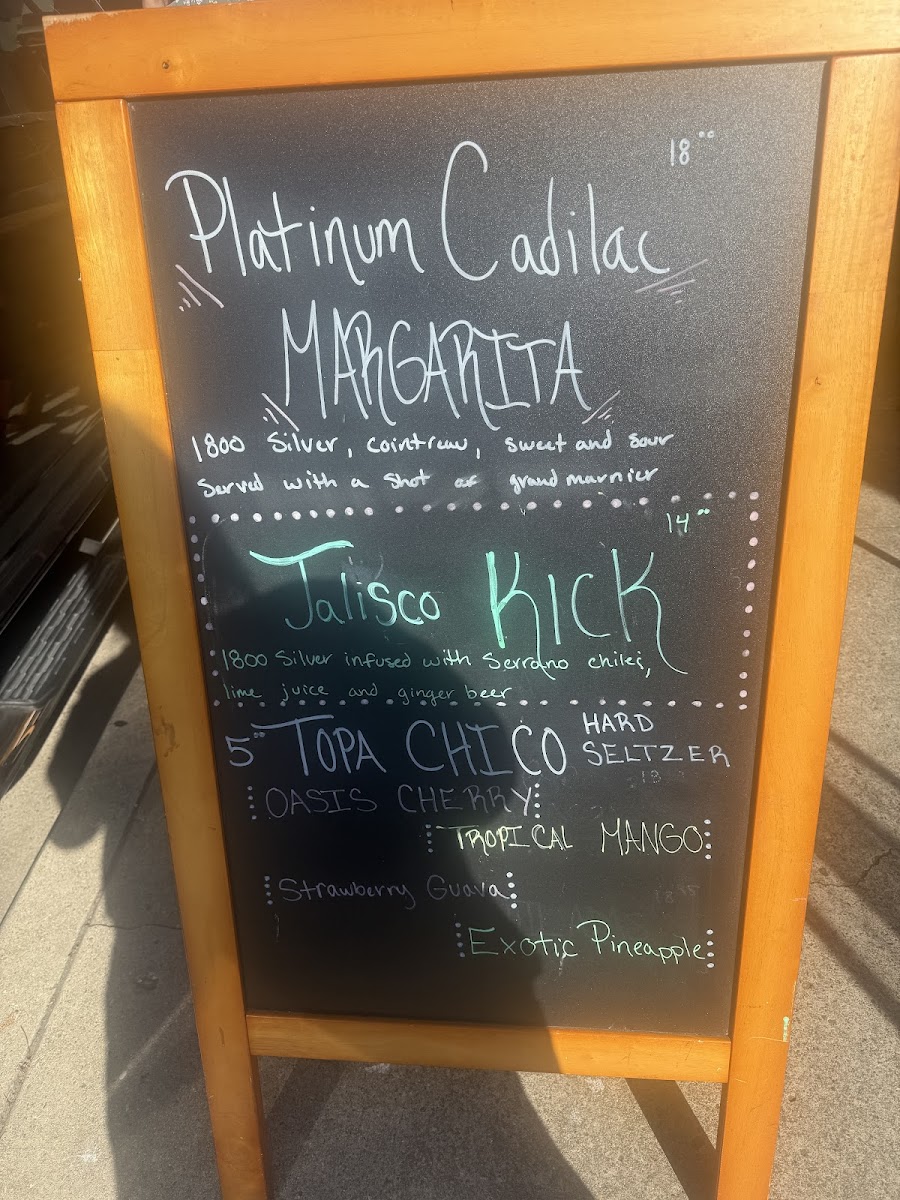 18°°
Platinum Cadilac
MARGARITA
1800 Silver, cointreau, sweet and sour
Served with a shot of grand marnier
14°°
Jalisco KICK
1800 Silver infused with Serrano chiles,
lime juice and ginger beer
5°° TOPA CHICO HARD SELTZER
OASIS CHERRY
TROPICAL MANGO
Strawberry Guava
Exotic Pineapple